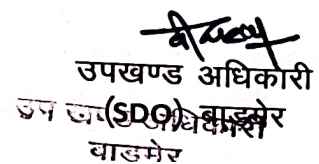 उपखण्ड अधिकारी
(SDO) बाड़मेर
उप खण्ड अधिकारी
बाड़मेर